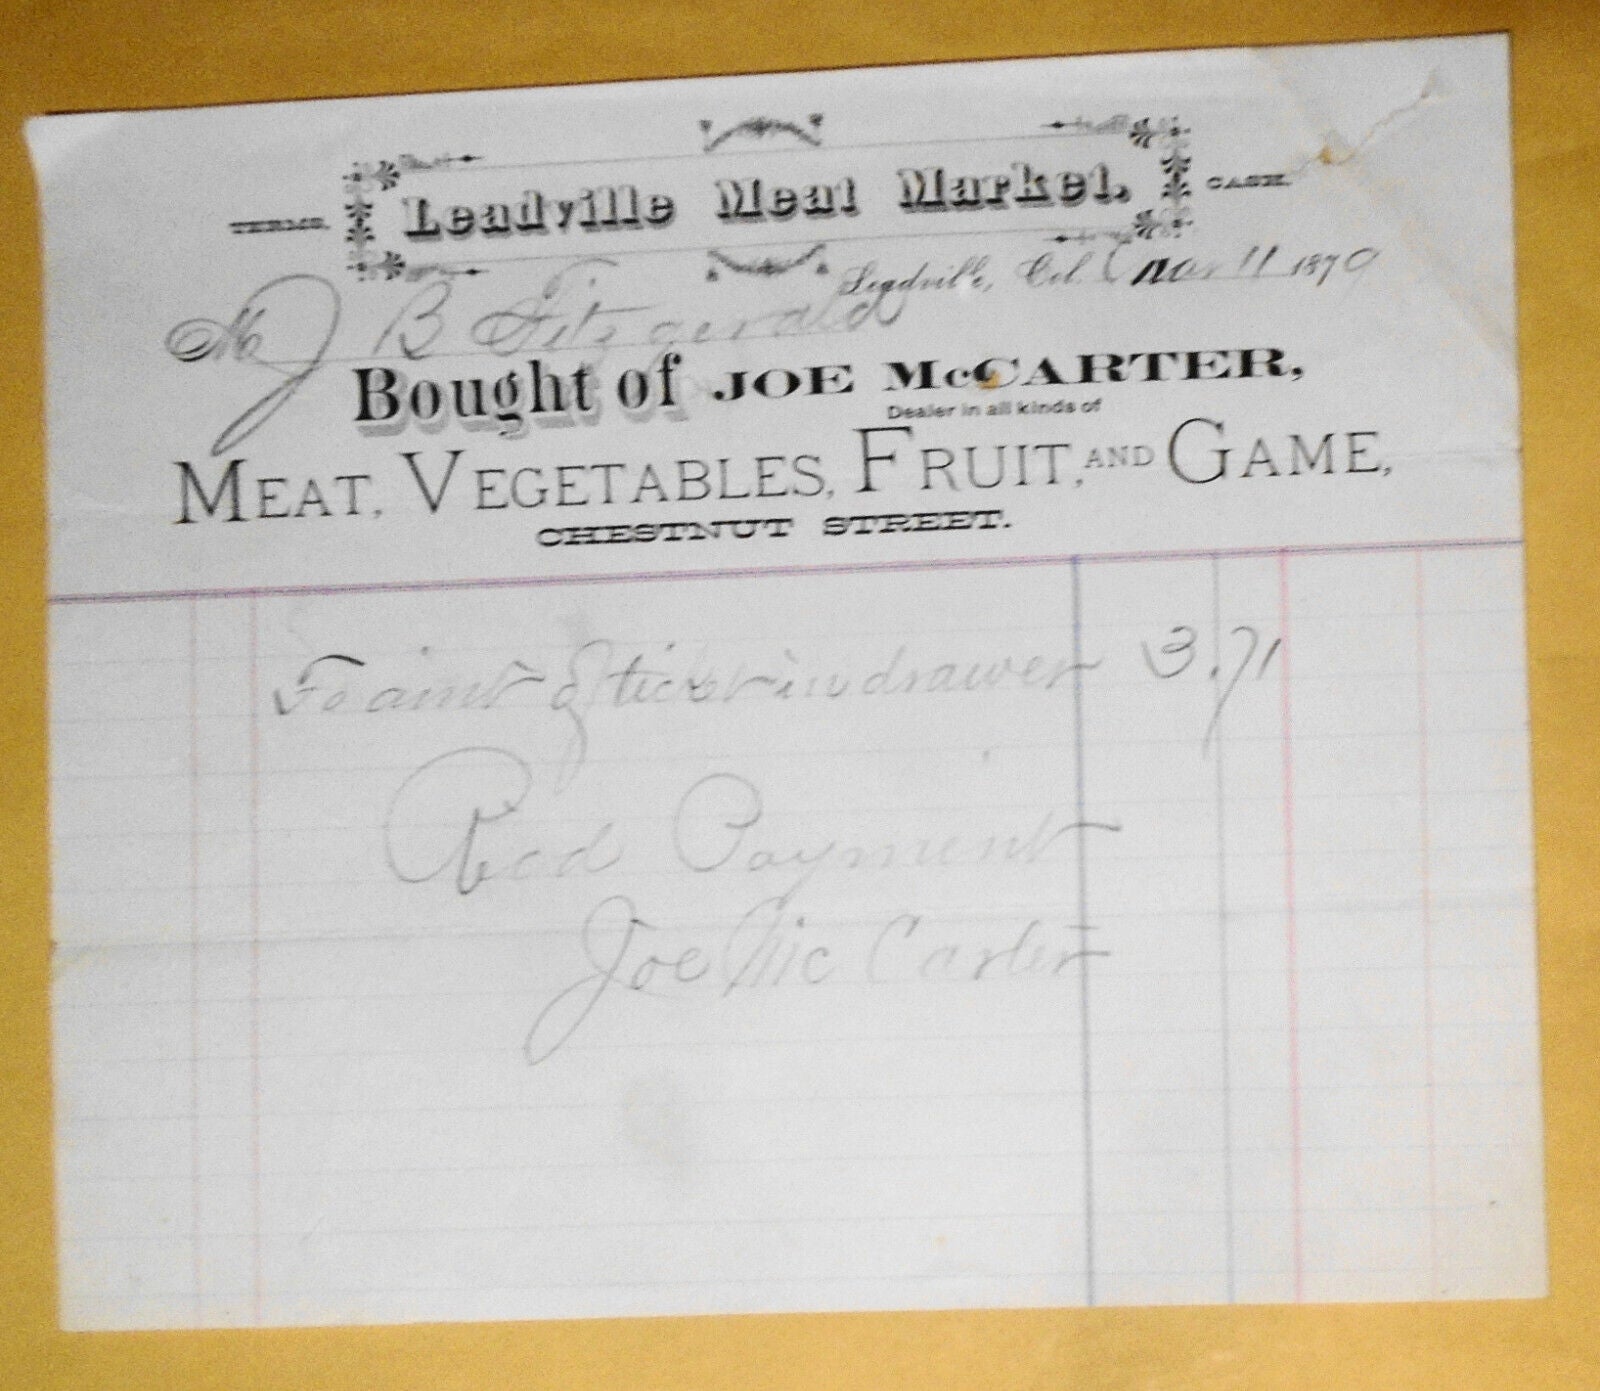 TERMS, Leadville Meat Market, CASH.
Leadville, Col. Mar 11 1879
M J B Fitzgerald
Bought of JOE McCARTER,
Dealer in all kinds of
MEAT, VEGETABLES, FRUIT, AND GAME,
CHESTNUT STREET.
To amt of ticket in drawer 3.71
Recd Payment
Joe McCarter